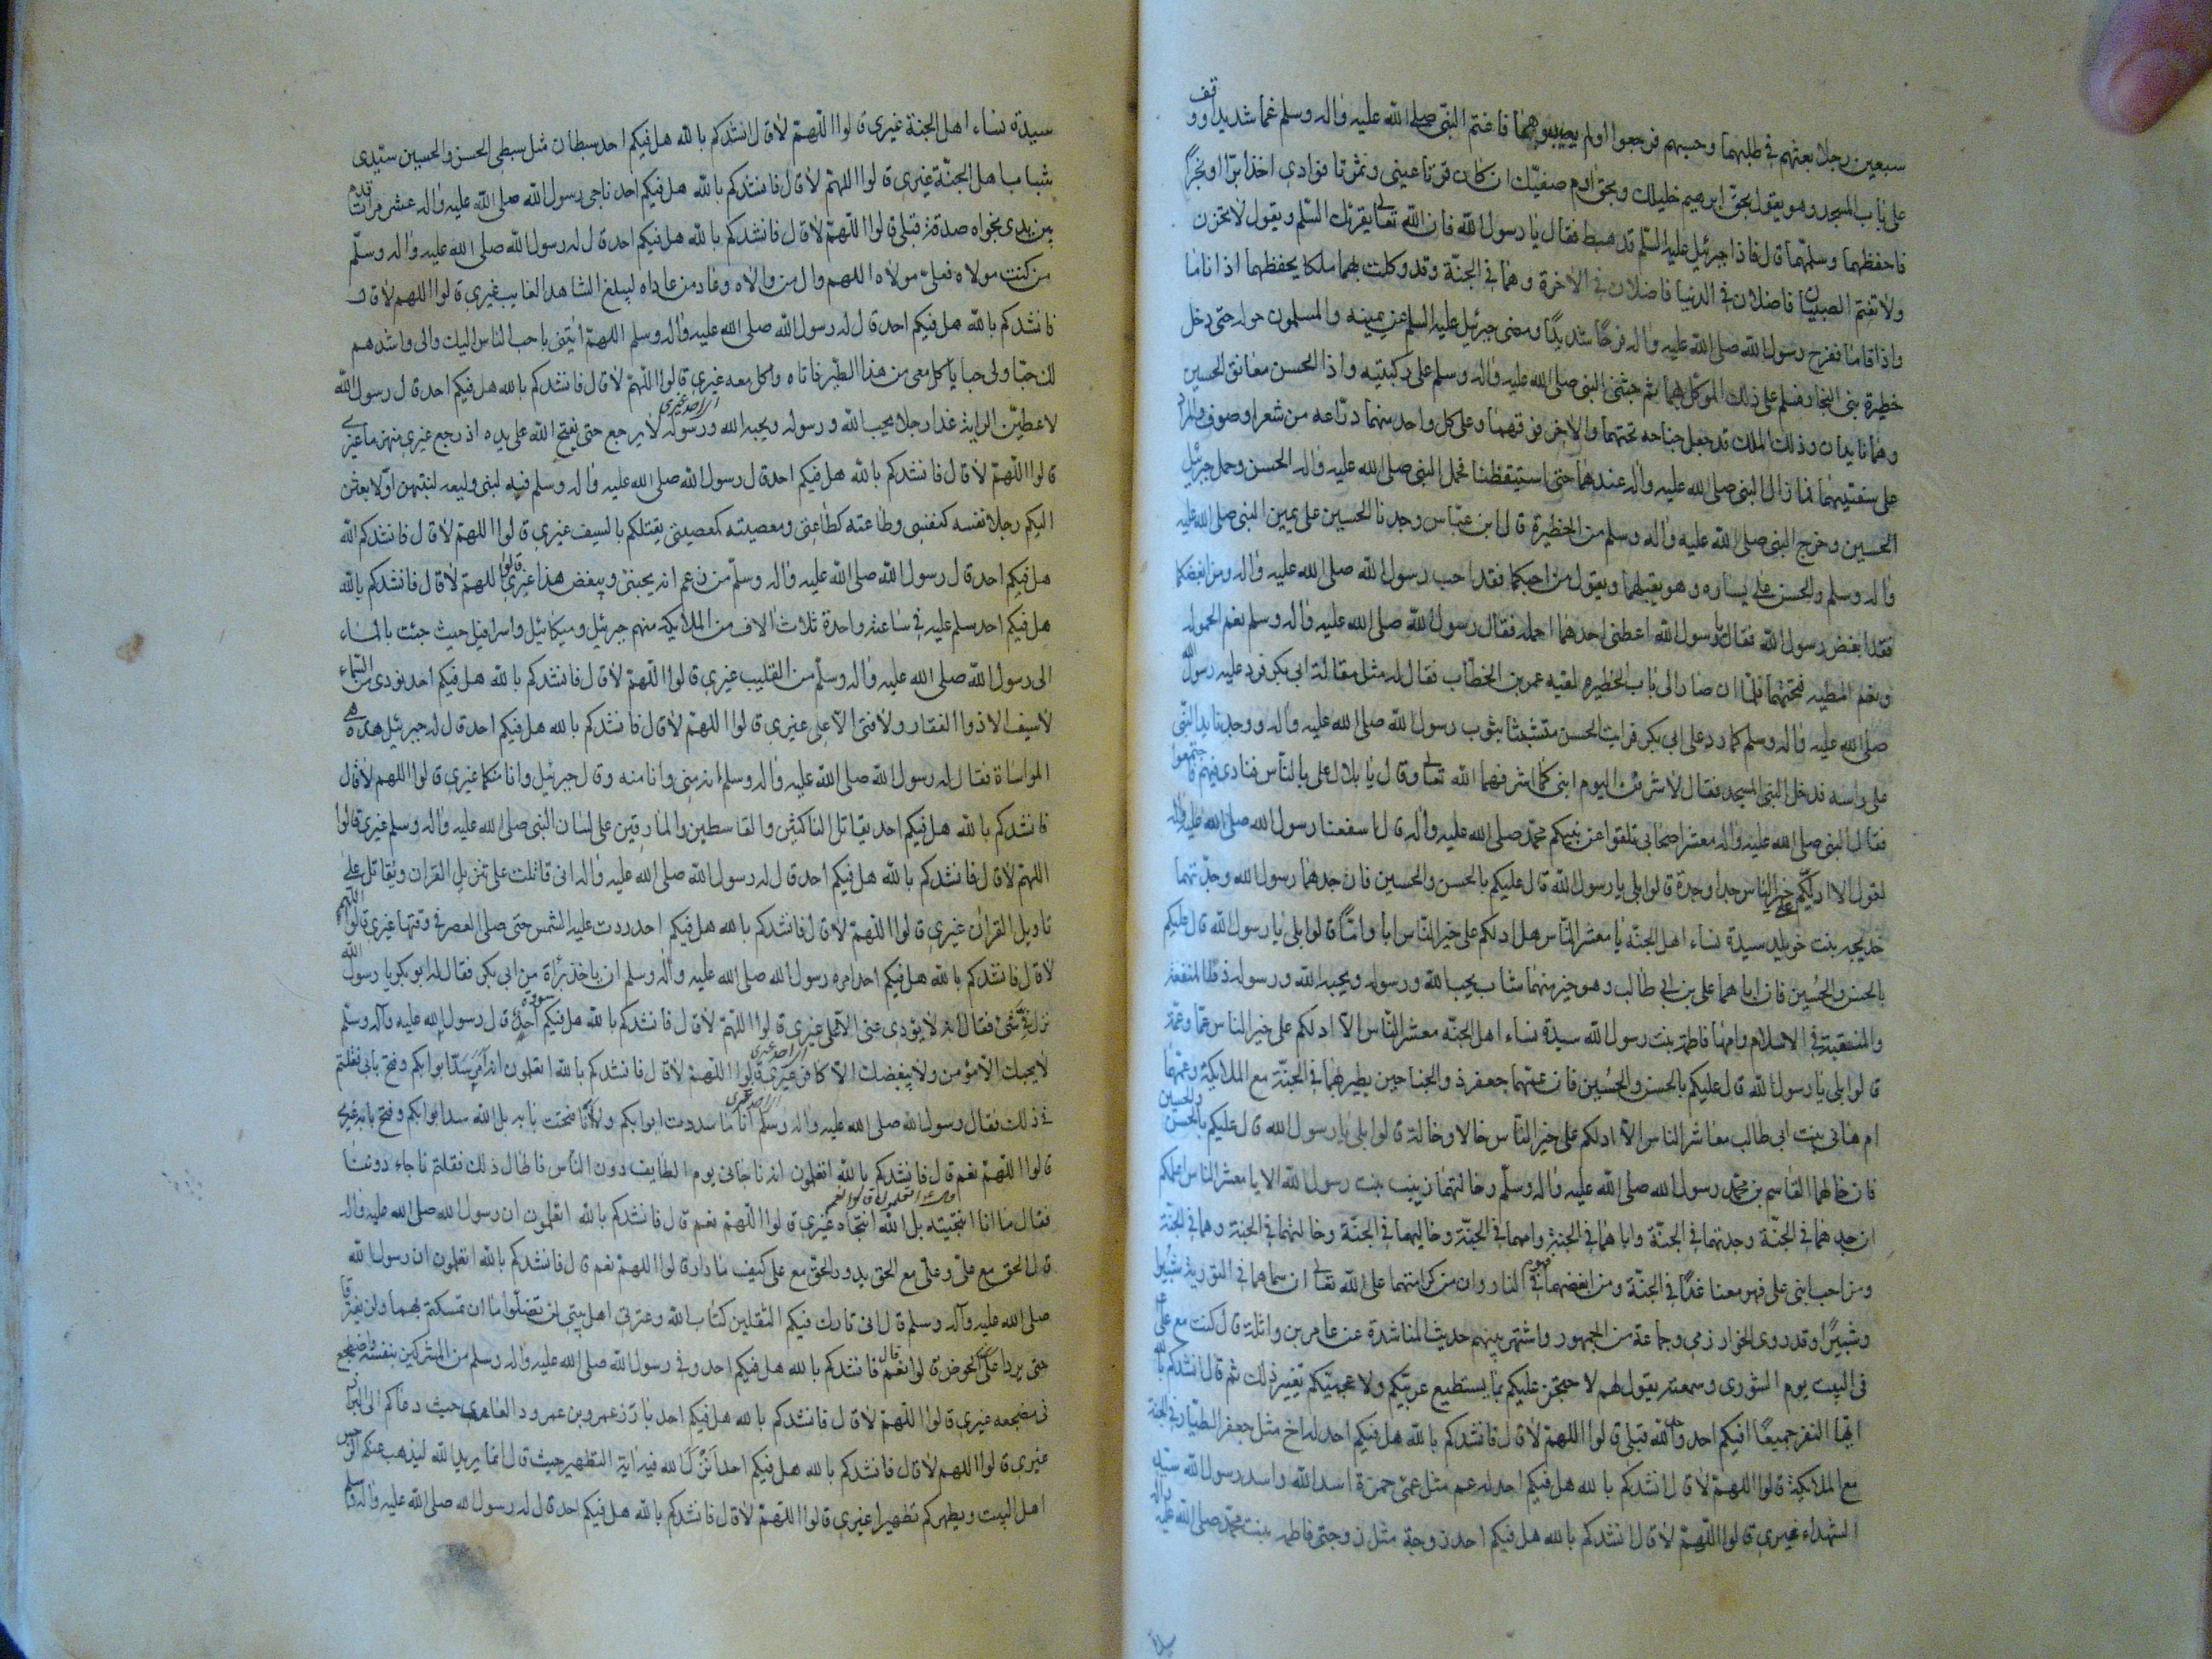 سبعين رجلا بعثهم في طلبهما وحسبهم فرجعوا ولم يصيبوهما فاغتم النبي صلى الله عليه واله وسلم غما شديدا ووقف
على باب المسجد وهو يقول بحق ابرهيم خليلك وبحق ادم صفيك ان كان قرتا عيني وثمرتا فؤادي اخذا برا او بحرا
فاحفظهما وسلمهما قال فاذا جبرئيل عليه السلم قد هبط فقال يا رسول الله فان الله تعالى يقرئك السلم ويقول لا تحزن
ولا تغتم الصبيان فاضلان في الدنيا فاضلان في الاخرة وهما في الجنة وقد وكلت بهما ملكا يحفظهما اذا ناما
واذا قاما ففرح رسول الله صلى الله عليه واله فرحا شديدا ومضى جبرئيل عليه السلم عن يمينه والمسلمون حوله حتى دخل
حظيرة بني النجار فسلم على ذلك الموكل بهما ثم جثى النبي صلى الله عليه واله وسلم على ركبتيه واذا الحسن معانق الحسين
وهما نايمان وذلك الملك قد جعل جناحه تحتهما والاخر فوقهما وعلى كل واحد منهما دراعه من شعر او صوف والمداد
على شفتيهما فما زال النبي صلى الله عليه واله عندهما حتى استيقظا فحمل النبي صلى الله عليه واله الحسن وحمل جبرئيل
الحسين وخرج النبي صلى الله عليه واله وسلم من الحظيرة قال ابن عباس وجدنا الحسين على يمين النبي صلى الله عليه
واله وسلم والحسن على يساره وهو يقبلهما ويقول من احبكما فقد احب رسول الله صلى الله عليه واله ومن ابغضكما
فقد ابغض رسول الله فقال يا رسول الله اعطني احدهما احمله فقال رسول الله صلى الله عليه واله وسلم نعم الحموله
ونعم المطيه تحتهما فلما ان صار الى باب الحظيره لقيه عمر بن الخطاب فقال له مثل مقالة ابي بكر فرد عليه رسول الله
صلى الله عليه واله وسلم كما رد على ابي بكر فرايت الحسن متشبثا بثوب رسول الله صلى الله عليه واله ووجدنا يد النبي
على راسه فدخل النبي المسجد فقال لاشرفن اليوم ابني كما شرفهما الله تعالى وقال يا بلال علي بالناس فنادى فيهم فاجتمعوا
فقال النبي صلى الله عليه واله معشر اصحابي تلقوا عن نبيكم محمد صلى الله عليه واله قال سمعنا رسول الله صلى الله عليه واله
يقول الا ادلكم على خير الناس جدا وجدة قالوا بلى يا رسول الله قال عليكم بالحسن والحسين فان جدهما رسول الله وجدتهما
خديجه بنت خويلد سيدة نساء اهل الجنه يا معشر الناس هل ادلكم على خير الناس ابا واما قالوا بلى يا رسول الله قال عليكم
بالحسن والحسين فان اباهما علي بن ابي طالب وهو خير منهما شاب يحب الله ورسوله ويحبه الله ورسوله ذو المنفعة
والمنقبة في الاسلام وامهما فاطمة بنت رسول الله سيدة نساء اهل الجنه معشر الناس الا ادلكم على خير الناس عما وعمة
قالوا بلى يا رسول الله قال عليكم بالحسن والحسين فان عمهما جعفر ذو الجناحين يطير بهما في الجنة مع الملايكة وعمتهما
ام هاني بنت ابي طالب معاشر الناس الا ادلكم على خير الناس خالا وخالة قالوا بلى يا رسول الله قال عليكم بالحسن والحسين
فان خالهما القاسم بن محمد رسول الله صلى الله عليه واله وسلم وخالتهما زينب بنت رسول الله الا يا معشر الناس اعلمكم
ان جدهما في الجنة وجدتهما في الجنة واباهما في الجنة وامهما في الجنة وخاليهما في الجنة وخالتهما في الجنة وهما في الجنة
ومن احب ابني علي فهو معنا غدا في الجنة ومن ابغضهما فهو في النار وان من كرامتهما على الله تعالى ان سماهما في التورية شبر
وشبيرا وقد روى الخوارزمي وجماعة من الجمهور واشتهر بينهم حديث المناشدة عن عامر بن واثلة قال كنت مع علي ع
في البيت يوم الشورى وسمعته يقول لهم لاحتجن عليكم بما يستطيع عربيكم ولا عجميكم تغيير ذلك ثم قال انشدكم بالله
ايها النفر جميعا افيكم احد وحد الله قبلي قالوا اللهم لا قال فانشدكم بالله هل فيكم احد له اخ مثل جعفر الطيار في الجنة
مع الملايكة قالوا اللهم لا قال انشدكم بالله هل فيكم احد له عم مثل عمي حمزة اسد الله واسد رسول الله سيد
الشهداء غيري قالوا اللهم لا قال انشدكم بالله هل فيكم احد زوجة مثل زوجتي فاطمه بنت محمد صلى الله عليه واله
سيدة نساء اهل الجنة غيري قالوا اللهم لا قال انشدكم بالله هل فيكم احد سبطان مثل سبطي الحسن والحسين سيدي
شباب اهل الجنة غيري قالوا اللهم لا قال فانشدكم بالله هل فيكم احد ناجى رسول الله صلى الله عليه واله عشر مرات قدم
بين يدي نجواه صدقة قبلي قالوا اللهم لا قال فانشدكم بالله هل فيكم احد قال له رسول الله صلى الله عليه واله وسلم
من كنت مولاه فعلي مولاه اللهم وال من والاه وعاد من عاداه ليبلغ الشاهد الغايب غيري قالوا اللهم لا قال
فانشدكم بالله هل فيكم احد قال له رسول الله صلى الله عليه واله وسلم اللهم ائتني باحب الناس اليك والي واشدهم
لك حبا ولي حبا ياكل معي من هذا الطير فاتاه واكل معه غيري قالوا اللهم لا قال فانشدكم بالله هل فيكم احد قال رسول الله
لاعطين الراية غدا رجلا يحب الله ورسوله ويحبه الله ورسوله لا يرجع حتى يفتح الله على يده اذ رجع غيري منهزما غيري
قالوا اللهم لا قال فانشدكم بالله هل فيكم احد قال رسول الله صلى الله عليه واله وسلم فيه لبني وليعه لتنتهن او لابعثن
اليكم رجلا نفسه كنفسي وطاعته كطاعتي ومعصيته كمعصيتي يقتلكم بالسيف غيري قالوا اللهم لا قال فانشدكم الله
هل فيكم احد قال رسول الله صلى الله عليه واله وسلم من زعم انه يحبني ويبغض هذا غيري قالوا اللهم لا قال فانشدكم بالله
هل فيكم احد سلم عليه في ساعة واحدة ثلاث الاف من الملايكة منهم جبرئيل وميكائيل واسرافيل حيث جئت بالماء
الى رسول الله صلى الله عليه واله وسلم من القليب غيري قالوا اللهم لا قال فانشدكم بالله هل فيكم احد نودي من السماء
لا سيف الا ذو الفقار ولا فتى الا علي غيري قالوا اللهم لا قال فانشدكم بالله هل فيكم احد قال له جبرئيل هذه هي
المواساة فقال له رسول الله صلى الله عليه واله وسلم انه مني وانا منه وقال جبرئيل وانا منكما غيري قالوا اللهم لا قال
فانشدكم بالله هل فيكم احد يقاتل الناكثين والقاسطين والمارقين على لسان النبي صلى الله عليه واله وسلم غيري قالوا
اللهم لا قال فانشدكم بالله هل فيكم احد قال له رسول الله صلى الله عليه واله اني قاتلت على تنزيل القران ويقاتل على
تاويل القران غيري قالوا اللهم لا قال فانشدكم بالله هل فيكم احد ردت عليه الشمس حتى صلى العصر في وقتها غيري قالوا اللهم
لا قال فانشدكم بالله هل فيكم احد امره رسول الله صلى الله عليه واله وسلم ان ياخذ براة من ابي بكر فقال له ابو بكر يا رسول الله
نزل في شئ فقال انه لا يؤدي عني الا علي غيري قالوا اللهم لا قال فانشدكم بالله هل فيكم احد قال رسول الله عليه وآله وسلم
لا يحبك الا مؤمن ولا يبغضك الا كافر غيري قالوا اللهم لا قال فانشدكم بالله اتعلمون انه امر بسد ابوابكم وفتح بابي فقلتم
في ذلك فقال رسول الله صلى الله عليه واله وسلم انا ما سددت ابوابكم ولا انا فتحت بابه بل الله سد ابوابكم وفتح بابه غيري
قالوا اللهم نعم قال فانشدكم بالله اتعلمون انه ناجاني يوم الطايف دون الناس فاطال ذلك فقلتم ناجاه دوننا
فقال ما انا انتجيته بل الله انتجاه غيري قالوا اللهم نعم قال فانشدكم بالله اتعلمون ان رسول الله صلى الله عليه واله
قال الحق مع علي وعلي مع الحق يدور الحق مع علي كيف ما دار قالوا اللهم نعم قال فانشدكم بالله اتعلمون ان رسول الله
صلى الله عليه وآله وسلم قال اني تارك فيكم الثقلين كتاب الله وعترتي اهل بيتي لن تضلوا ما ان تمسكتم بهما ولن يفترقا
حتى يردا علي الحوض قالوا نعم قال فانشدكم بالله هل فيكم احد وقى رسول الله صلى الله عليه واله وسلم من المشركين بنفسه واضطجع
في مضجعه غيري قالوا اللهم لا قال فانشدكم بالله هل فيكم احد بارز عمرو بن عبد ود العامري حيث دعاكم الى البراز
غيري قالوا اللهم لا قال فانشدكم بالله هل فيكم احد انزل الله فيه اية التطهير حيث قال انما يريد الله ليذهب عنكم الرجس
اهل البيت ويطهركم تطهيرا غيري قالوا اللهم لا قال فانشدكم بالله هل فيكم احد قال له رسول الله صلى الله عليه واله وسلم